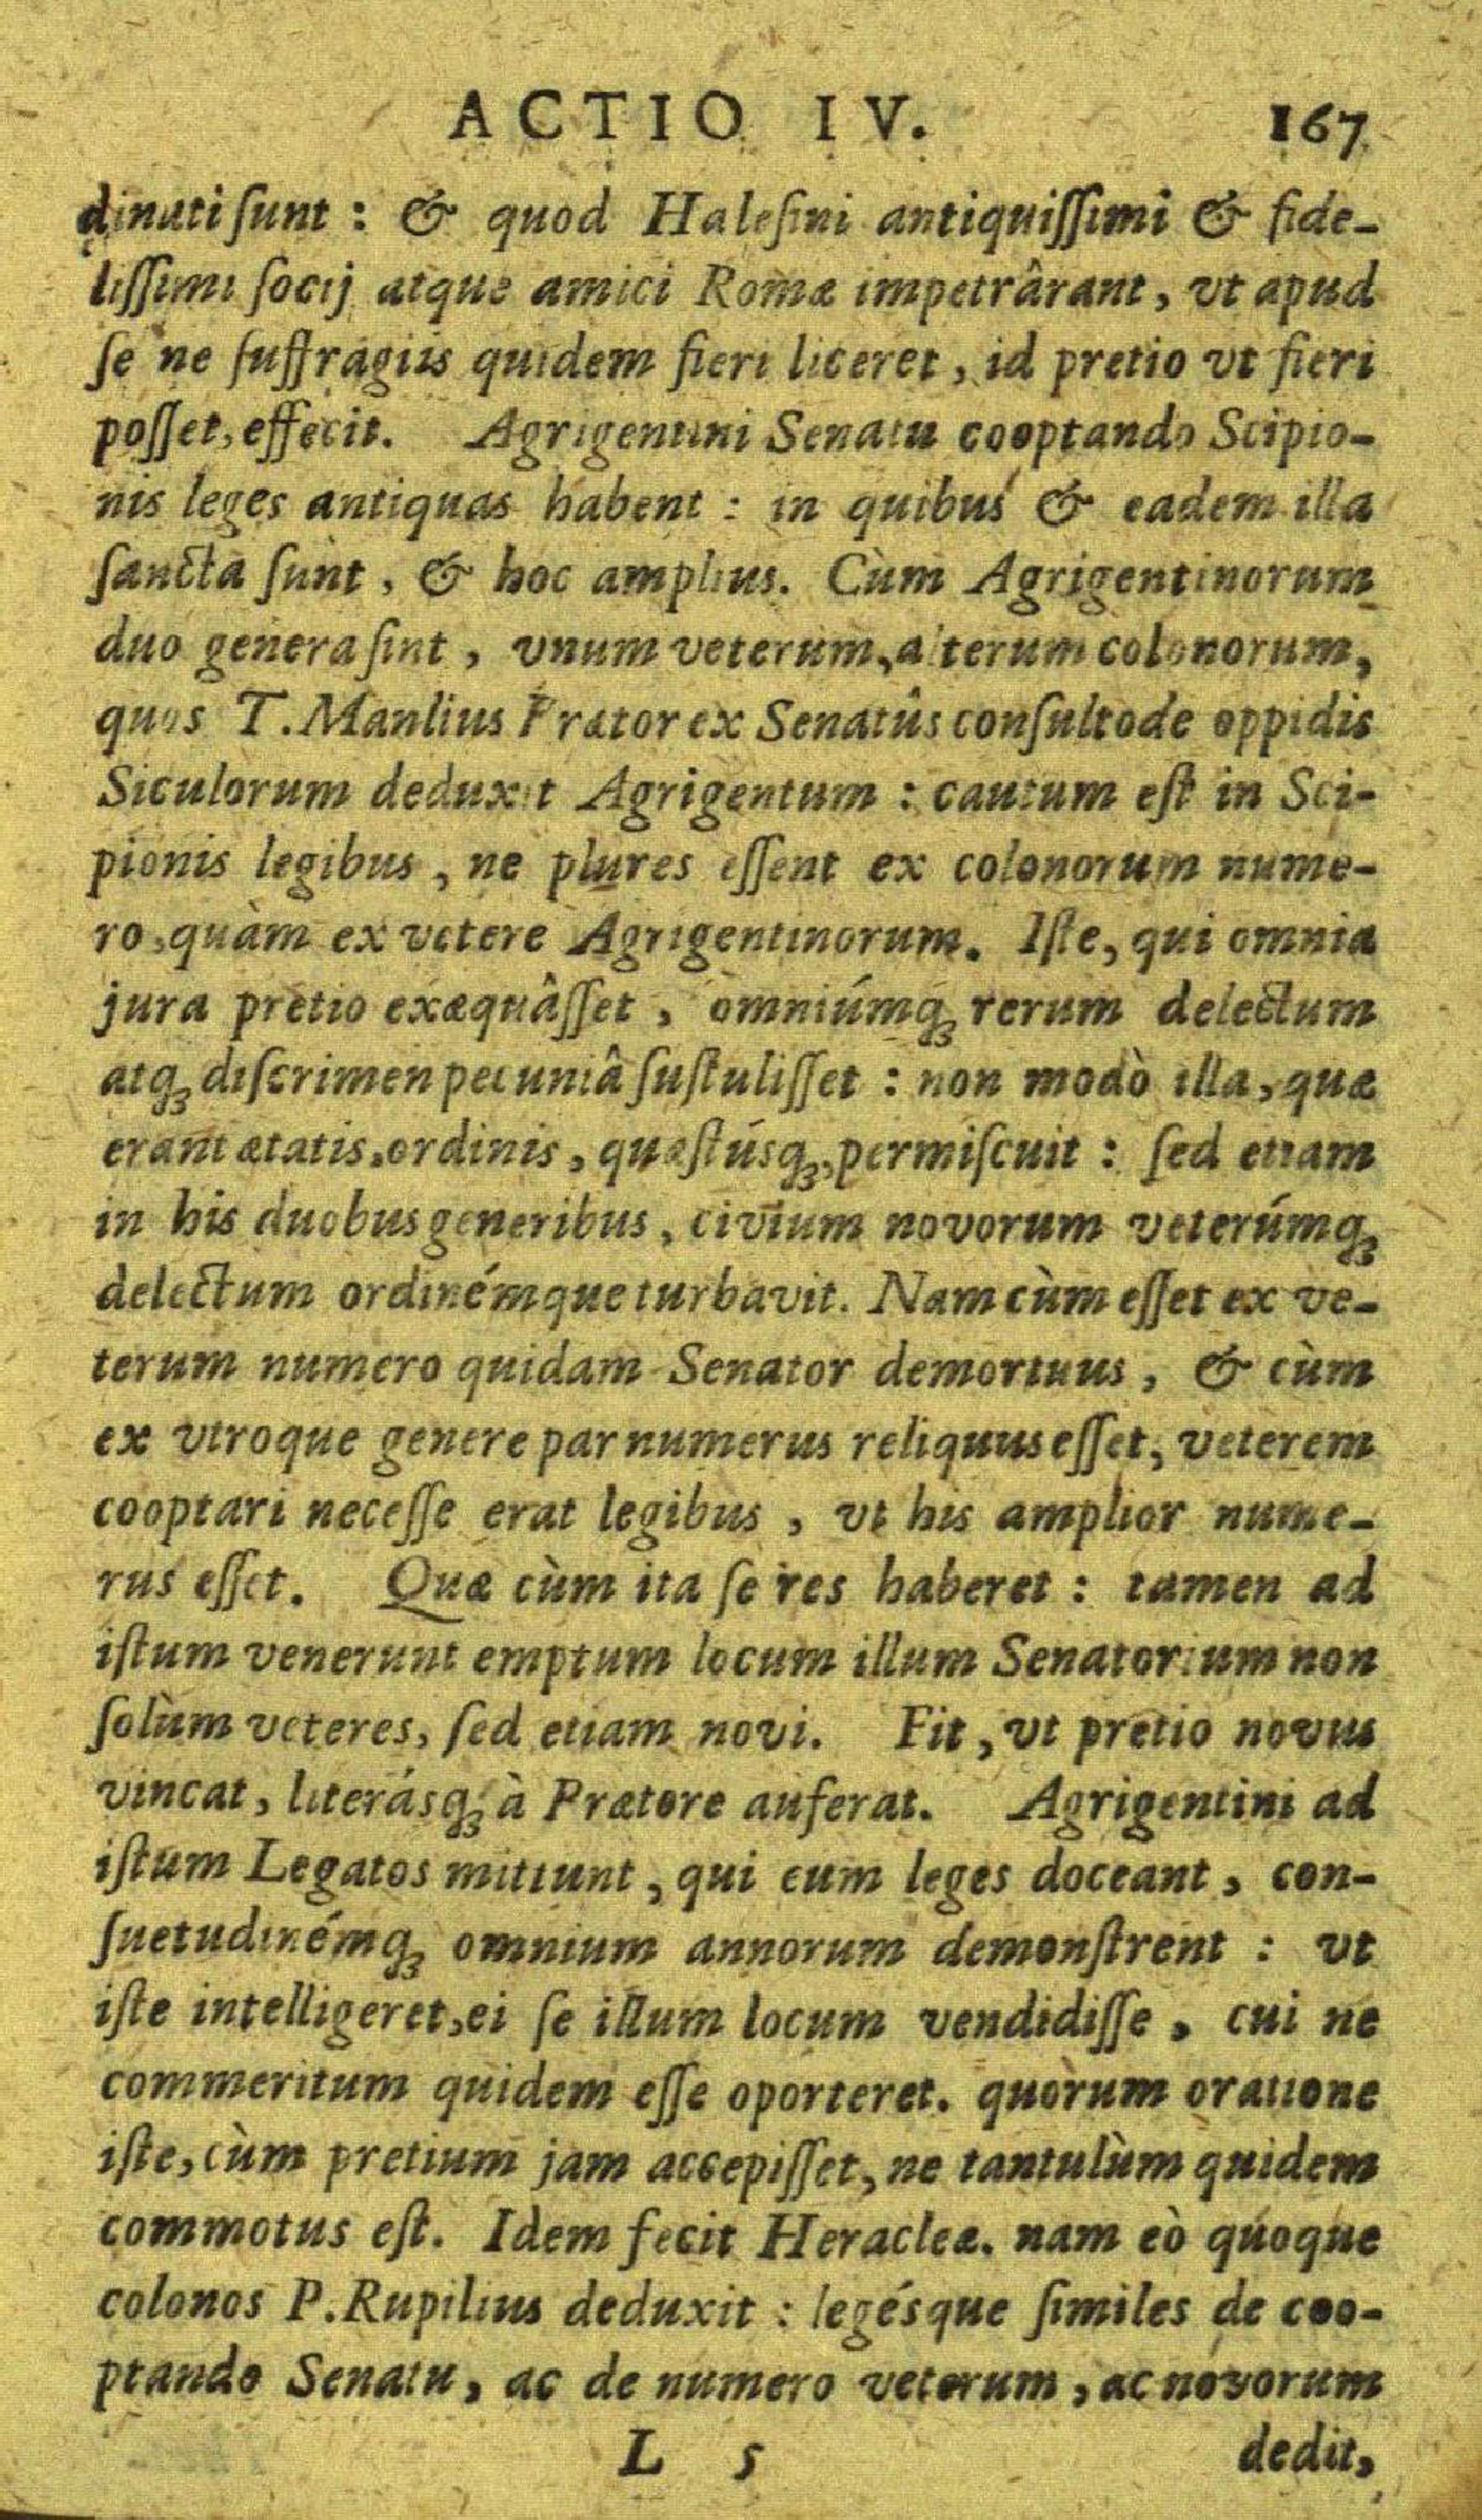 ACTIO IV. 167
dinati ſunt : & quod Haleſini antiquiſſimi & fide-
liſſimi ſocij atque amici Romæ impetrârant, vt apud
ſe ne ſuffragiis quidem fieri liceret, id pretio vt fieri
poſſet, effecit. Agrigentini Senatu cooptando Scipio-
nis leges antiquas habent : in quibus & eadem illa
ſancta ſunt, & hoc amplius. Cùm Agrigentinorum
duo genera ſint, vnum veterum, alterum colonorum,
quos T. Manlius Prætor ex Senatûs conſulto de oppidis
Siculorum deduxit Agrigentum : cautum eſt in Sci-
pionis legibus, ne plures eſſent ex colonorum nume-
ro, quàm ex vetere Agrigentinorum. Iſte, qui omnia
jura pretio exæquâſſet, omniúmq; rerum delectum
atq; diſcrimen pecuniâ ſuſtuliſſet : non modò illa, quæ
erant ætatis, ordinis, quæſtúsq;, permiſcuit : ſed etiam
in his duobus generibus, civium novorum veterúmq;
delectum ordinémque turbavit. Nam cùm eſſet ex ve-
terum numero quidam Senator demortuus, & cùm
ex vtroque genere par numerus reliquus eſſet, veterem
cooptari neceſſe erat legibus, vt his amplior nume-
rus eſſet. Quæ cùm ita ſe res haberet : tamen ad
iſtum venerunt emptum locum illum Senatorium non
ſolùm veteres, ſed etiam novi. Fit, vt pretio novus
vincat, literásq; à Prætore auferat. Agrigentini ad
iſtum Legatos mittunt, qui eum leges doceant, con-
ſuetudinémq; omnium annorum demonſtrent : vt
iſte intelligeret, ei ſe illum locum vendidiſſe, cui ne
commeritum quidem eſſe oporteret. quorum oratione
iſte, cùm pretium jam accepiſſet, ne tantulùm quidem
commotus eſt. Idem fecit Heracleæ. nam eò quoque
colonos P. Rupilius deduxit : legésque ſimiles de coo-
ptando Senatu, ac de numero veterum, ac novorum
L 5 dedit,